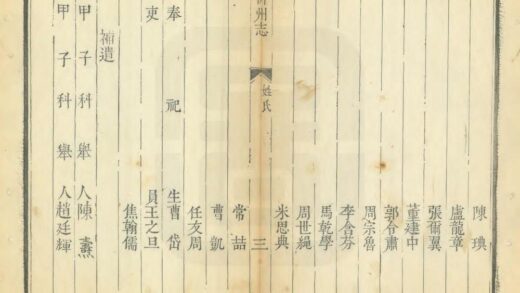 陳
盧龍章
張爾翼
董建中
郭令肅
周宗魯
李含芬
馬乾學
周世繩
米思典
州志 姓氏 三
常喆
曹凱
任友周
奉祀生曹岱
吏員王之旦
焦翰儒
補遺
甲子科舉人陳燾
甲子科舉人趙廷輝